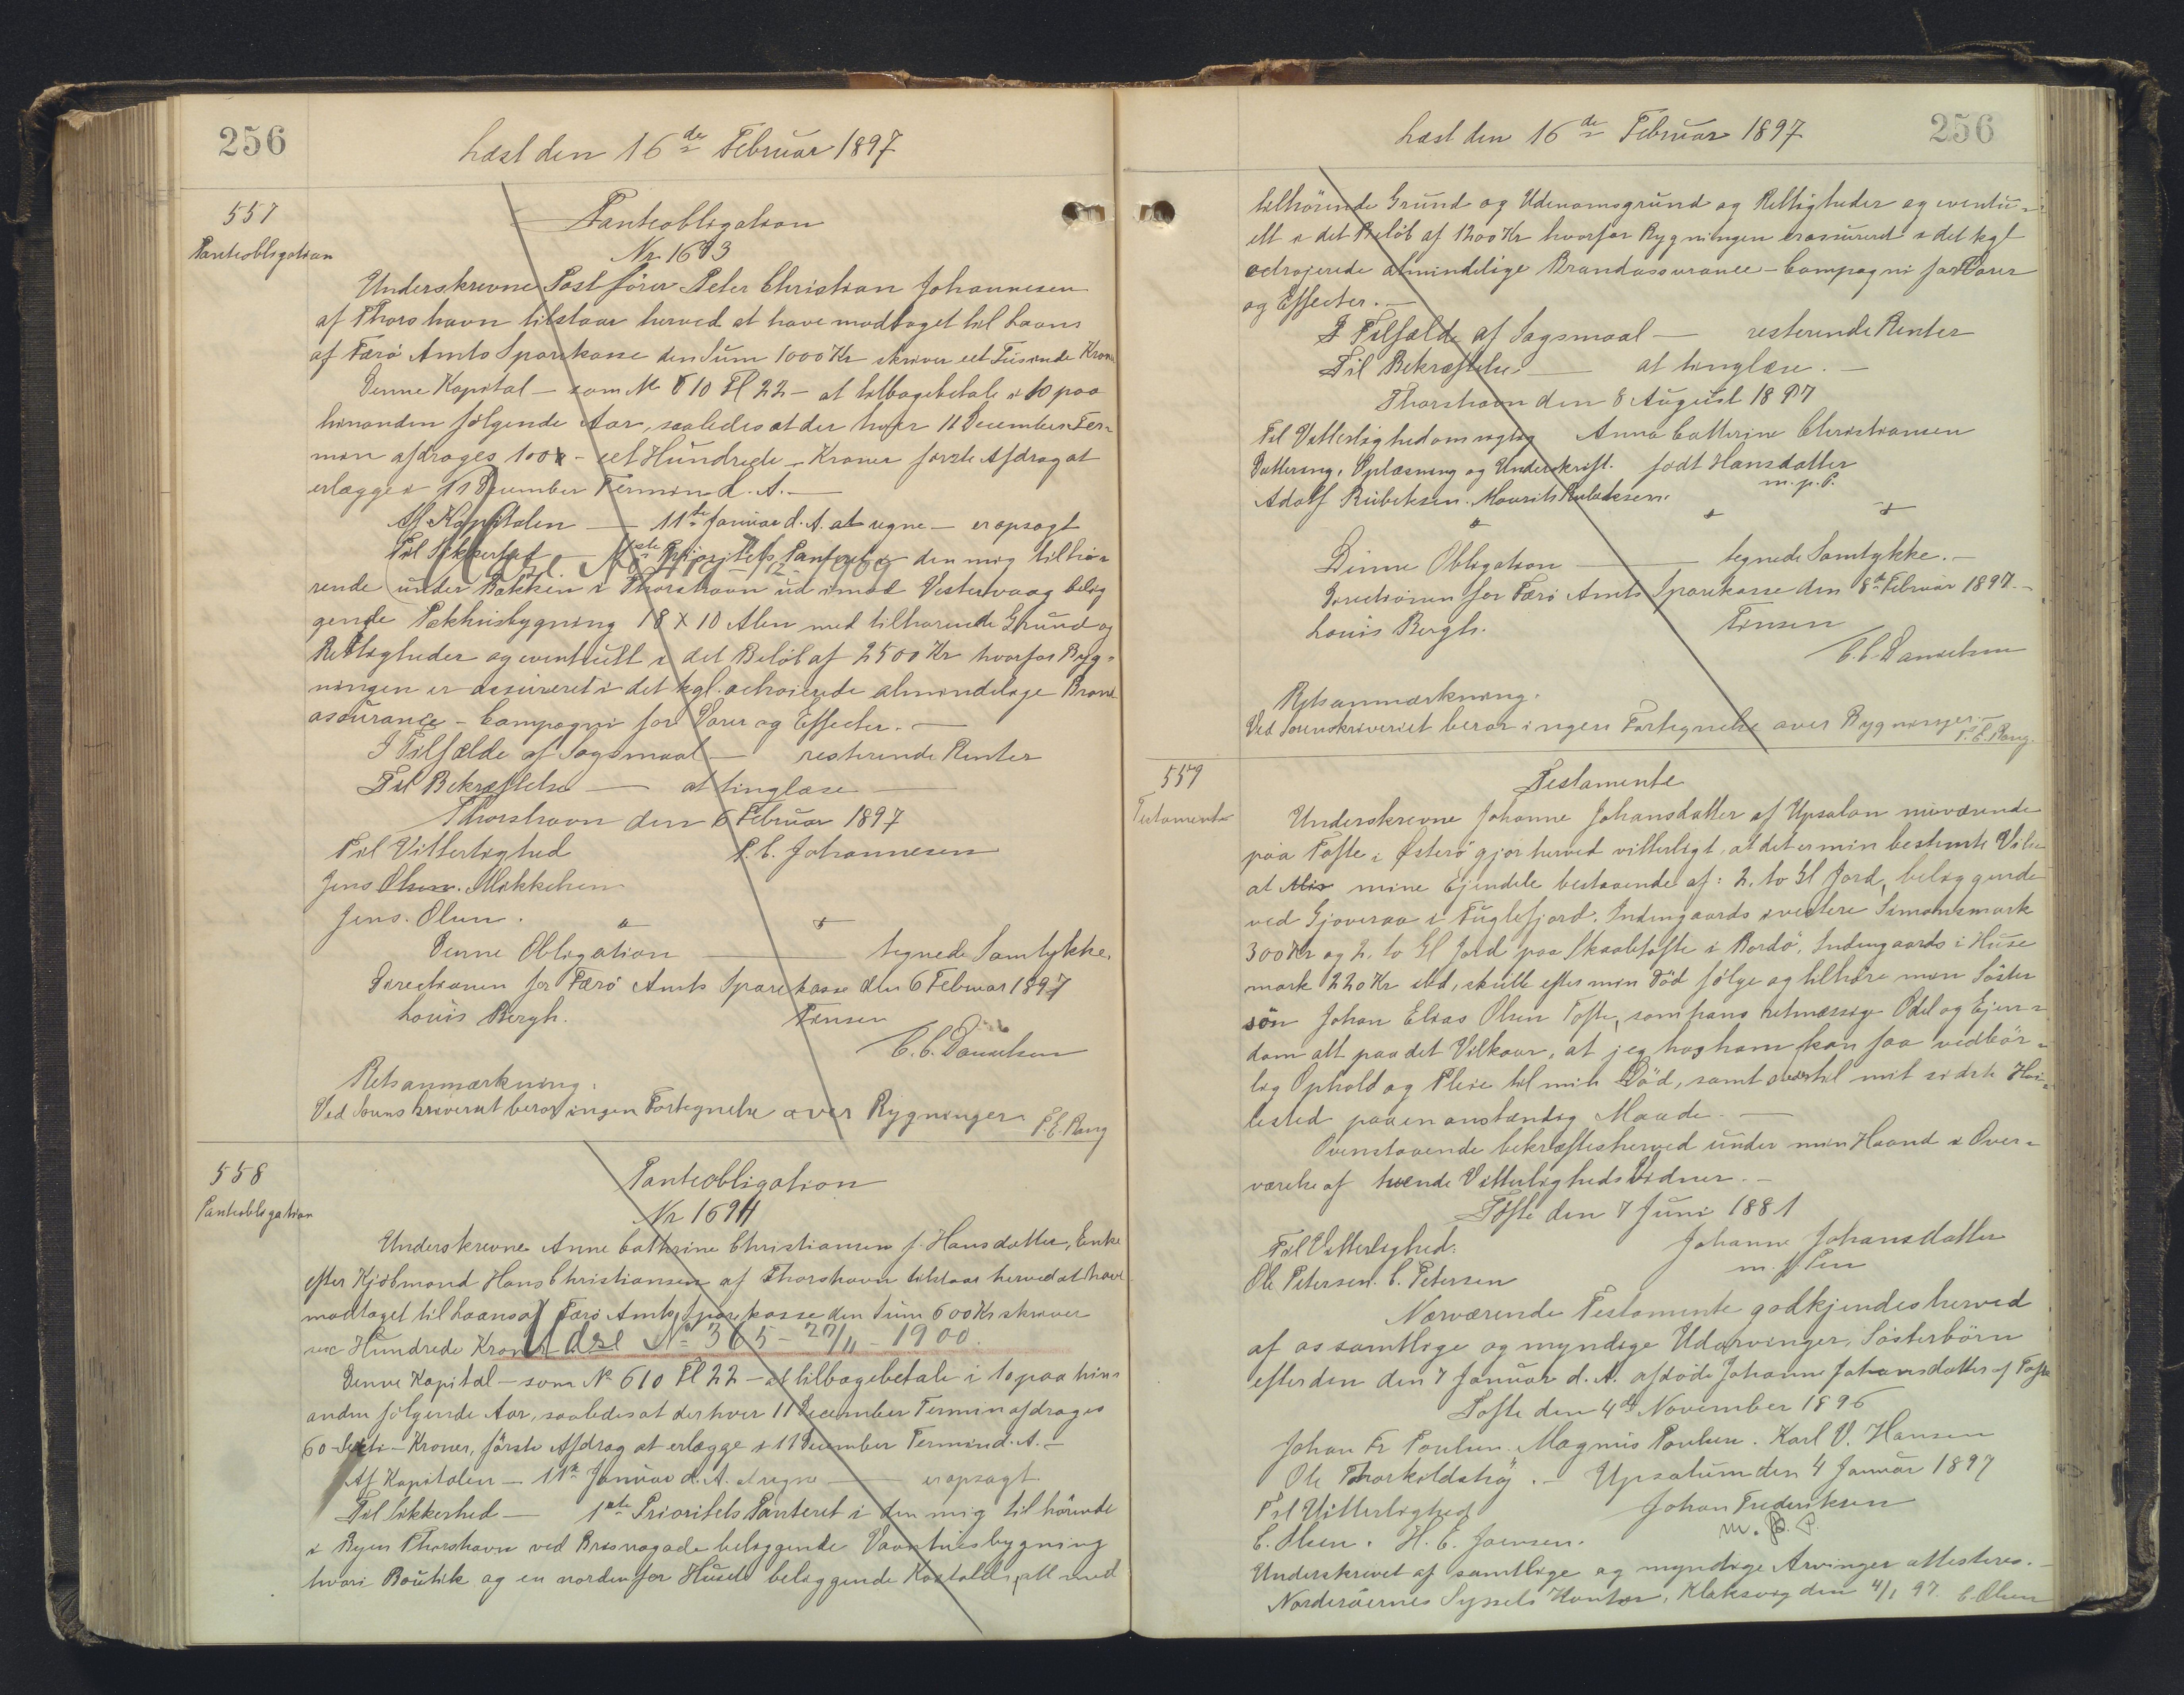 256
Læst den 16de Februar 1897
557
Panteobligation
Panteobligation
Nr 1693
Underskrevne Postförer Peter Christian Johannesen
af Thorshavn tilstaar herved at have modtaget til Laans
af Færö Amts Sparekasse den Sum 1000 Kr skriver eet Tusinde Kroner
Denne Kapital – som № 610 Fl 22 – at tilbagebetale i 10 paa
hinanden fölgende Aar, saaledes at der hver 11 December Ter-
min afdrages 100 Kr – eet Hundrede – Kroner förste Afdrag at
erlægge i 11 December Termin d. A. –
Af Kapitalen – 11te Januar d. A. at regne – er opsagt
Til Sikkerhed – 1ste Prioritets Panteret i den mig tilhö-
rende under Bakken i Thorshavn ud imod Vestervaag belig
gende Pakhusbygning 18 x 10 Alen med tilhørende Grund og
Rettigheder og eventuelt i det Belöb af 2500 Kr hvorfor Byg-
ningen er assureret i det kgl. octroierede almindelige Brand
assurance – Compagni for Varer og Effecter. –
I Tilfælde af Sagsmaal – resterende Renter
Til Bekræftelse – at tinglæse –
Thorshavn den 6 Februar 1897
Til Vitterlighed P. C. Johannesen
Jens Olsen. Mikkelsen
Jens. Olsen.
Denne Obligation – tegnede Samtykke.
Directionen for Færö Amts Sparekasse den 6 Februar 1897
Louis Bergh. Finsen
C. C. Danielsen
Retsanmærkning:
Ved Sorenskriveriet beror ingen Fortegnelse over Bygninger. P. E. Bang
558
Panteobligation
Panteobligation
Nr 1694
Underskrevne Anne Cathrine Christiansen f. Hansdatter, Enke
efter Kjöbmand Hans Christiansen af Thorshavn tilstaar herved at have
modtaget til Laans af Færö Amts Sparekasse den Sum 600 Kr skriver
sex Hundrede Kroner Udsl № 365 – 27/11 – 1900.
Denne Kapital – som № 610 Fl 22 – at tilbagebetale i 10 paa hin-
anden fölgende Aar, saaledes at der hver 11 December Termin afdrages
60 – Kroner, förste Afdrag at erlægge i 11 December Termin d. A. –
Af Kapitalen – 11te Januar d. A. at regne – er opsagt
Til Sikkerhed – 1ste Prioritets Panteret i den mig tilhörende
i Byen Thorshavn ved Bresnagade beliggende Vaaningsbygning
hvori Boutik og en nordenfor Huset beliggende alt med
Læst den 16de Februar 1897
256
tilhörende Grund og Udenomsgrund og Rettigheder og eventu-
elt i det Belöb af 1200 Kr hvorfor Bygningen er assureret i det kgl
octrojerede almindelige Brandassurance – Compagni for Varer
og Effecter. –
I Tilfælde af Sagsmaal – resterende Renter
Til Bekræftelse – at tinglæse. –
Thorshavn den 8 August 1897
Til Vitterlighed om rigtig Anna Catherine Christiansen
Dattering, Oplæsning og Underskrift. födt Hansdatter
Adolf Rubeksen. Mourits Rubeksen. m. p. P.
Denne Obligation – tegnede Samtykke. –
Directionen for Færö Amts Sparekasse den 8de Februar 1897. –
Louis Bergh. Finsen
C. C. Danielsen
Retsanmærkning.
Ved Sorenskriveriet beror ingen Fortegnelse over Bygninger. – P. E. Bang.
559
Testamente
Testamente
Underskrevne Johanne Johansdatter af Upsalan nuværende
paa Tofte i Østerö gjör herved vitterligt, at det er min bestemte Vilie
at mine Ejendele bestaaende af: 2. to Gl Jord, beliggende
ved Gjoveraa i Fuglefjord. Indengaards i vestere Simonsmark
300 Kr og 2. to Gl Jord paa Skaaletofte i Bordö, Indengaards i Huse
mark 220 Kr skulle efter min Död fölge og tilhöre min Söster
sön Johan Elias Olsen Tofte, som hans retmæssige Odel og Ejen-
dom alt paa det Vilkaar, at jeg hos ham kan faa vedbör-
lig Ophold og Pleie til min Död, samt til mit sidste Hvi-
lested paa en anstændig Maade. –
Ovenstaaende bekræftes herved under min Haand i Over-
værelse af tvende Vitterligheds Vidner. –
Tofte den 7 Juni 1881
Til Vitterlighed: Johanne Johansdatter
Ole Petersen. C. Petersen m. f. Pen
Nærværende Testamente godkjendes herved
af os samtlige og myndige Udarvinger, Sösterbörn
efter den den 7 Januar d. A. afdöde Johanne Johansdatter af Tofte
Tofte den 4de November 1896
Johan Fr Poulsen. Magnus Poulsen. Karl V. Hansen
Ole Thorkildshöj. – Upsalum den 4 Januar 1897
Til Vitterlighed Johan Frederiksen
C. Olsen. H. E. Joensen. m. p. P.
Underskrevet af samtlige og myndige Arvinger attesteres. –
Norderöernes Syssels Kontor, Klaksvig den 4/1 97. C. Olsen